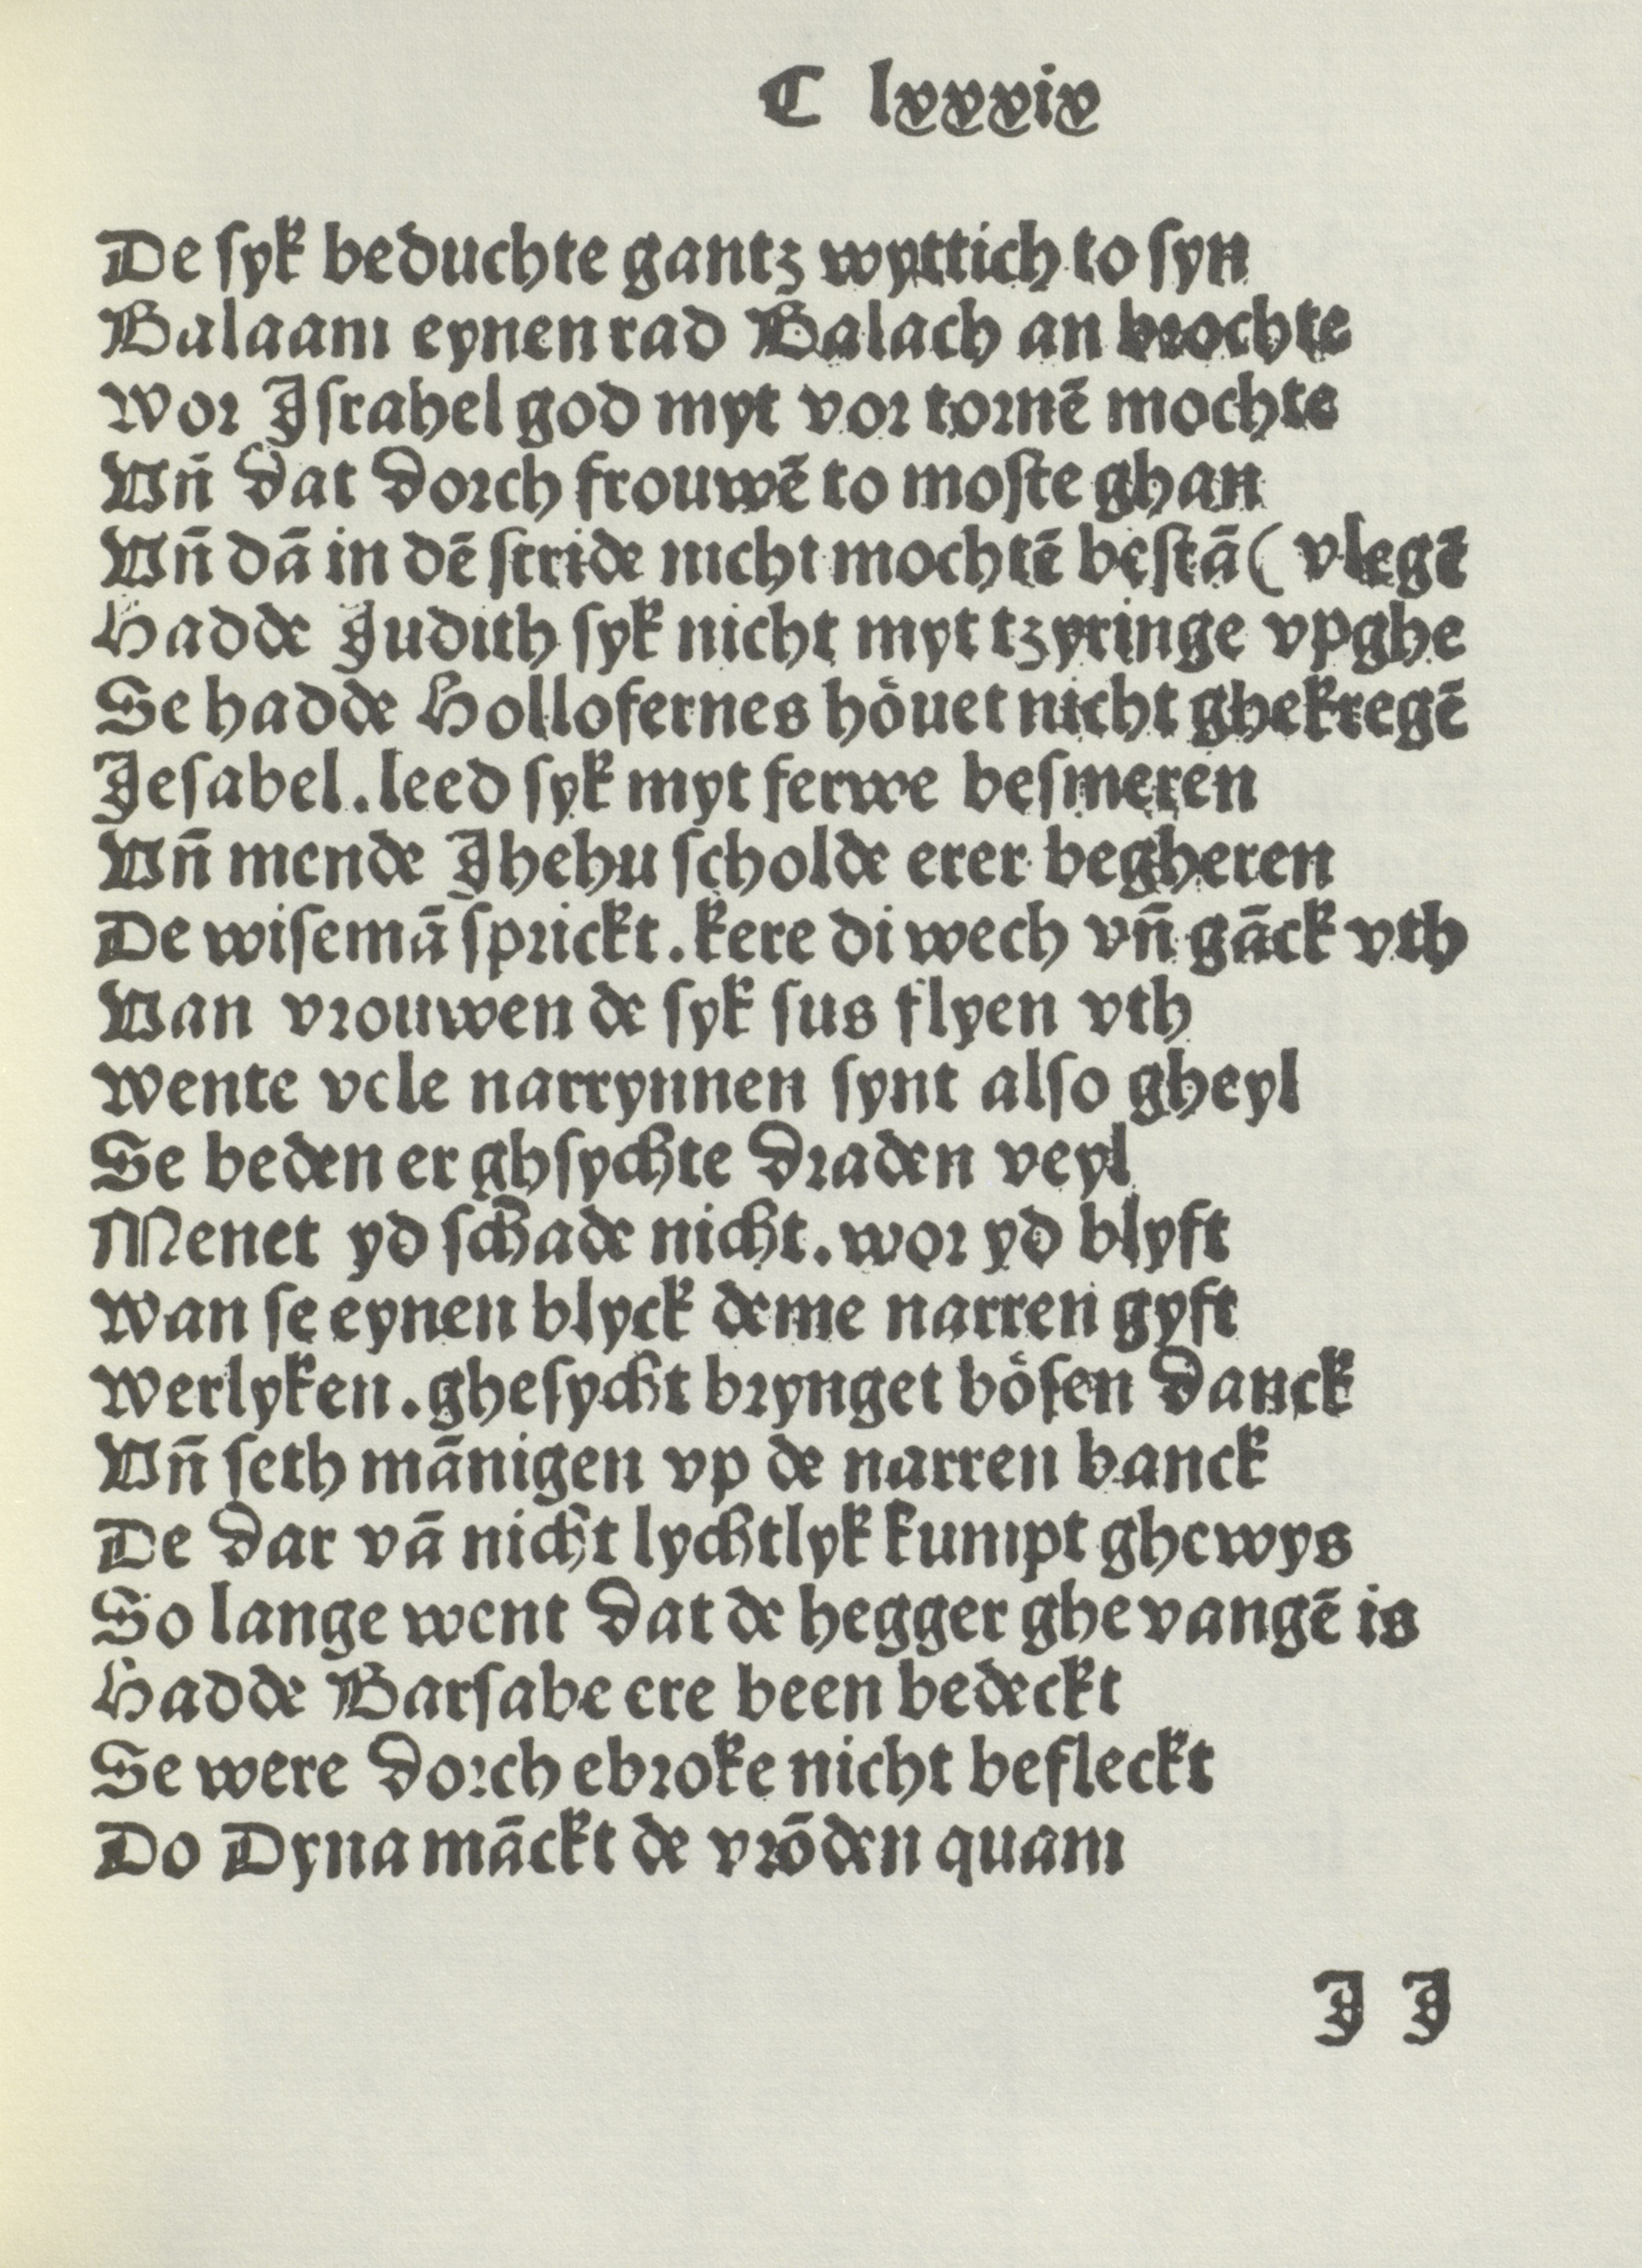 C lxxxix
De ſyk beduchte gantz wyttich to ſyn
Balaam eynen rad Balach an brochte
Wor Iſrahel god myt vor tornē mochte
Vn̄ dat dorch frouwē to moſte ghan
Vn̄ dā in dē ſtride nicht mochtē beſtā ( vlegē
Hadde Judith ſyk nicht myt tzyringe vpghe
Se hadde Hollofernes hoͤuet nicht ghekregē
Jeſabel. leed ſyk myt ferwe beſmeren
Vn̄ mende Jhehu ſcholde erer begheren
De wiſemā ſprickt. kere di wech vn̄ gāck vth
Van vrouwen de ſyk ſus flyen vth
Wente vele narrynnen ſynt alſo gheyl
Se beden er ghſychte draden veyl
Menet yd ſchade nicht. wor yd blyft
Wan ſe eynen blyck deme narren gyft
Werlyken. gheſycht brynget boͤſen danck
Vn̄ ſeth mānigen vp de narren banck
De dar vā nicht lychtlyk kumpt ghewys
So lange went dat de hegger ghe vangē is
Hadde Barſabe ere been bedeckt
Se were dorch ebroke nicht befleckt
Do Dyna māckt de vrōden quam
I I